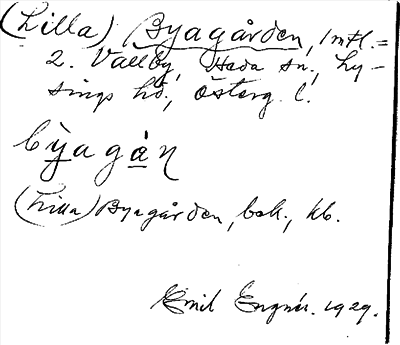 (Lilla) Byagården, 1 mtl. =
2. Vallby, Heda sn, Ly-
sings hd., Österg. l.
bỳagån
(Lilla) Byagården, bok., kb.
Emil Engnér. 1929.